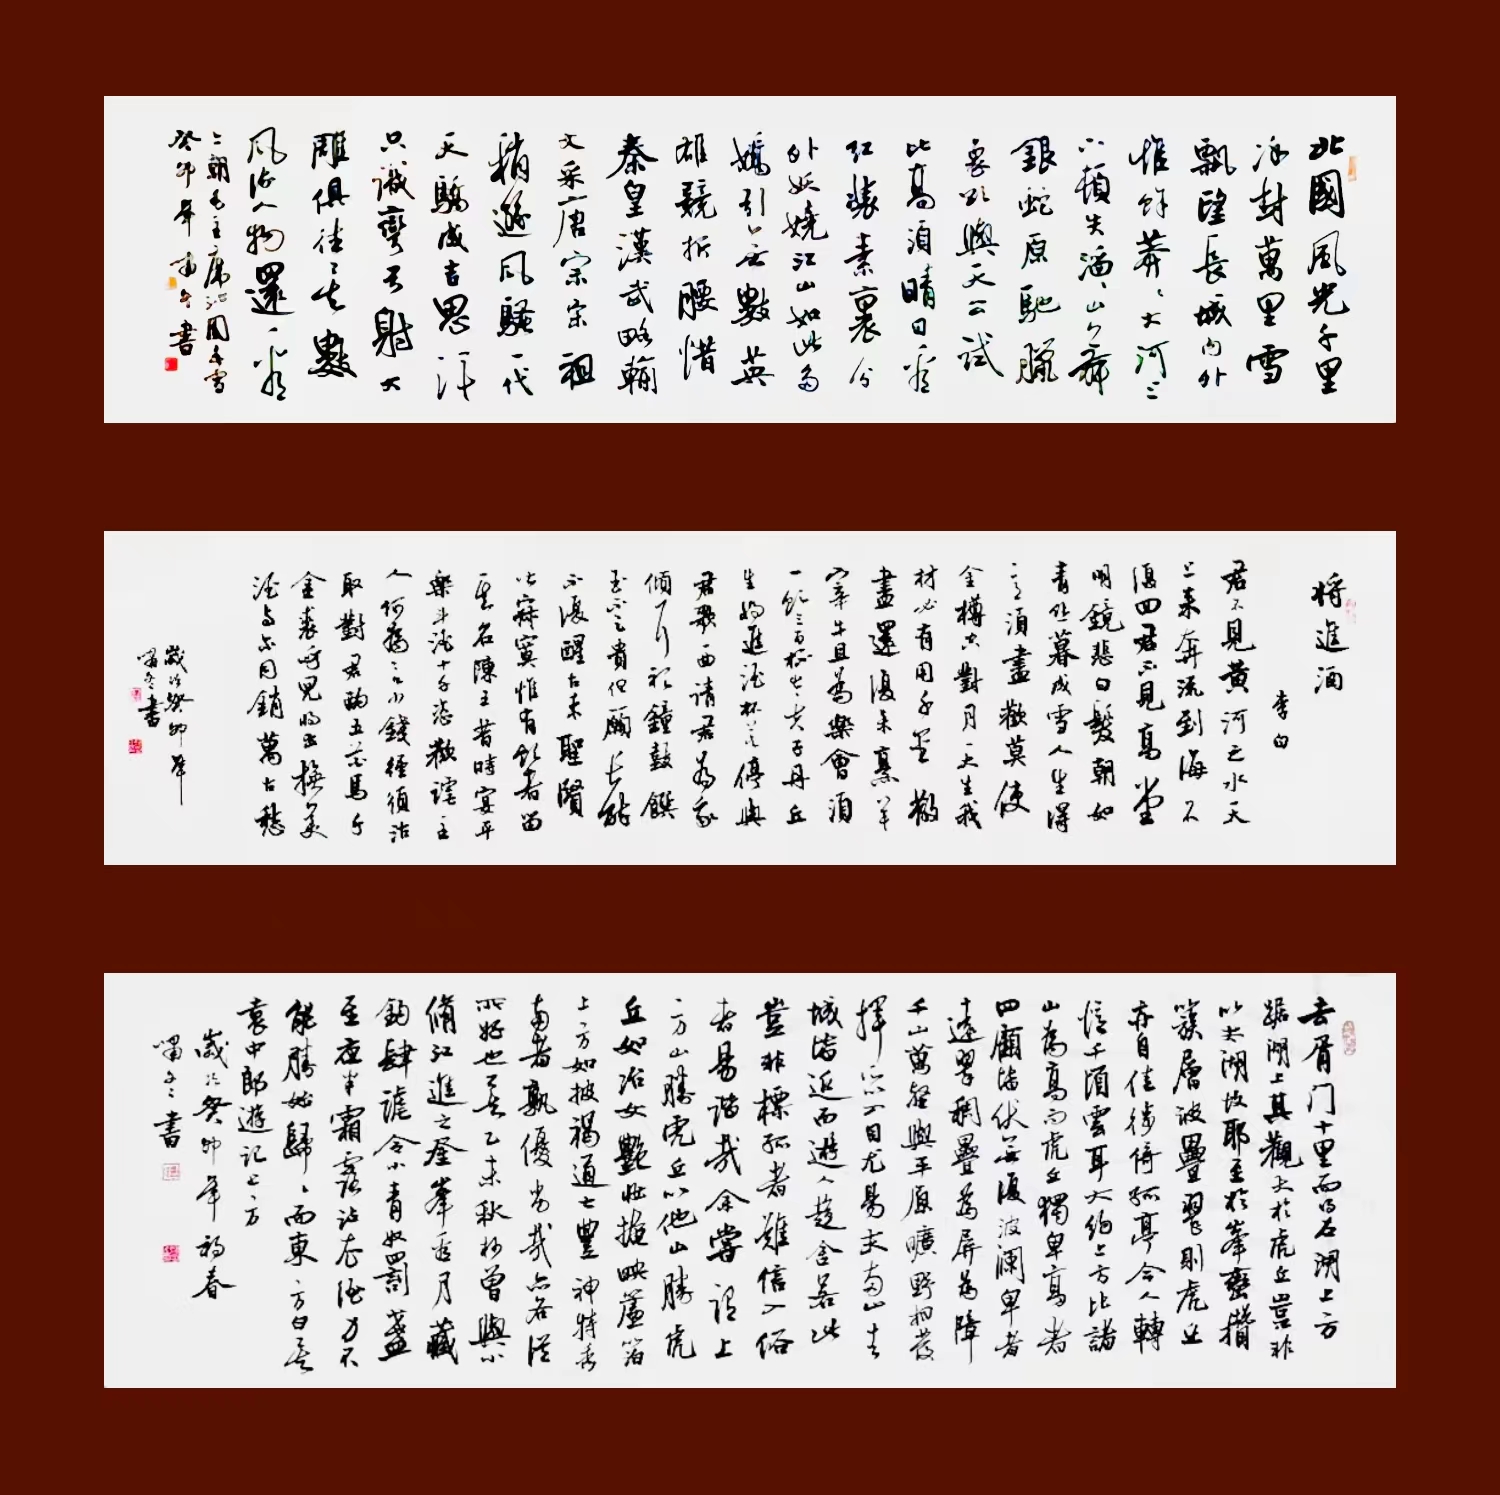 北國風光千里
冰封萬里雪
飄望長城內外
惟餘莽〻大河上
下頓失滔〻山舞
銀蛇原馳臘
象欲與天公試
比高須晴日看
紅裝素裹分
外妖嬈江山如此多
嬌引無數英
雄競折腰惜
秦皇漢武略輸
文采唐宗宋祖
稍遜風騷一代
天驕成吉思汗
只識彎弓射大
雕俱往矣數
風流人物還看今朝
毛主席沁園春雪
癸卯年書
將進酒
李白
君不見黃河之水天
上來奔流到海不
復回君不見高堂
明鏡悲白髮朝如
青絲暮成雪人生得
意須盡歡莫使
金樽空對月天生我
材必有用千金散
盡還復來烹羊
宰牛且為樂會須
一飲三百杯岑夫子丹丘
生將進酒杯莫停與
君歌一曲請君為我
傾耳聽鐘鼓饌
玉不足貴但願長醉
不復醒古來聖賢
皆寂寞惟有飲者留
其名陳王昔時宴平
樂斗酒十千恣歡謔主
人何為言少錢徑須沽
取對君酌五花馬千
金裘呼兒將出換美
酒與爾同銷萬古愁
歲次癸卯年
書
去胥门十里而得石湖上方
踞湖上其觀大於虎丘豈非
以太湖故耶至於峯巒攢
簇層波疊翠則虎丘
亦自佳徙倚孤亭令人轉
憶千頃雲耳大約上方比諸
山為高而虎丘獨卑高者
四顧皆伏無復波瀾卑者
遠翠稠疊為屏為障
千山萬壑與平原曠野相發
揮所以入目尤易夫兩山去
城皆近而遊人趨舍若此
豈非標孤者難信入俗
者易諧哉余嘗謂上
方山勝虎丘以他山勝虎
丘如冶女艷妝掩映簾箔
上方如披褐道士豐神特秀
兩者孰優劣哉亦各從
所好也矣乙未秋杪曾與小
脩江進之登峯看月藏
鈎肆謔令小青奴罰盞
至夜半霜露沾衣酒力不
能勝始歸歸而東方白矣
袁中郎遊記上方
歲次癸卯年初春
書